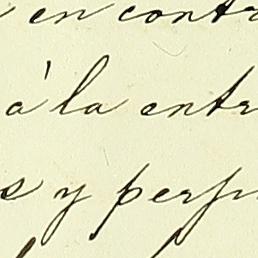 en contr
á la entr
s y perfu